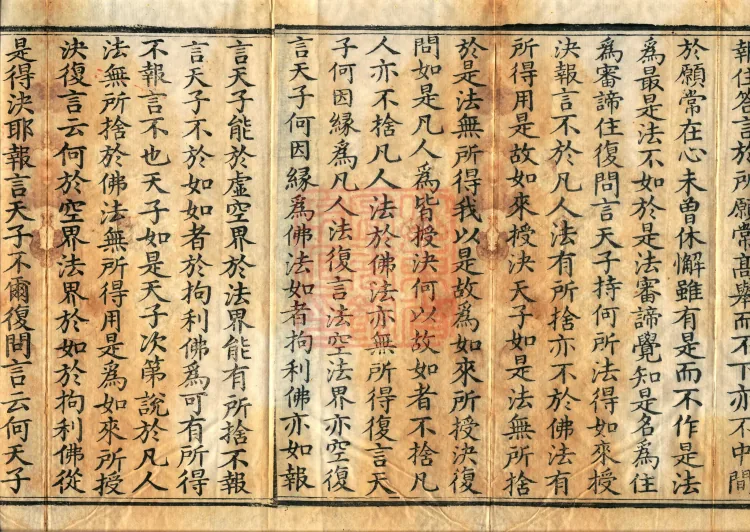 報住答言於所願常高舉而不下亦不中間
於願常在心未曾休懈雖有是而不作是法
為最是法不如於是法審諦覺知是名為住
為審諦住復問言天子持何所法得如來授
決報言不於凡人法有所捨亦不於佛法有
所得用是故如來授決天子如是法無所捨
於是法無所得我以是故為如來所授決復
問如是凡人為皆授決何以故如者不捨凡
人亦不捨凡人法於佛法亦無所得復言天
子何因緣為凡人法復言法空法界亦空復
言天子何因緣為佛法如者拘利佛亦如報
言天子能於虛空界於法界能有所捨不報
言天子不於如如者於拘利佛為可有所得
不報言不也天子如是天子次第說於凡人
法無所捨於佛法無所得用是為如來所授
決復言云何於空界法界於如於拘利佛從
是得決耶報言天子不爾復問言云何天子